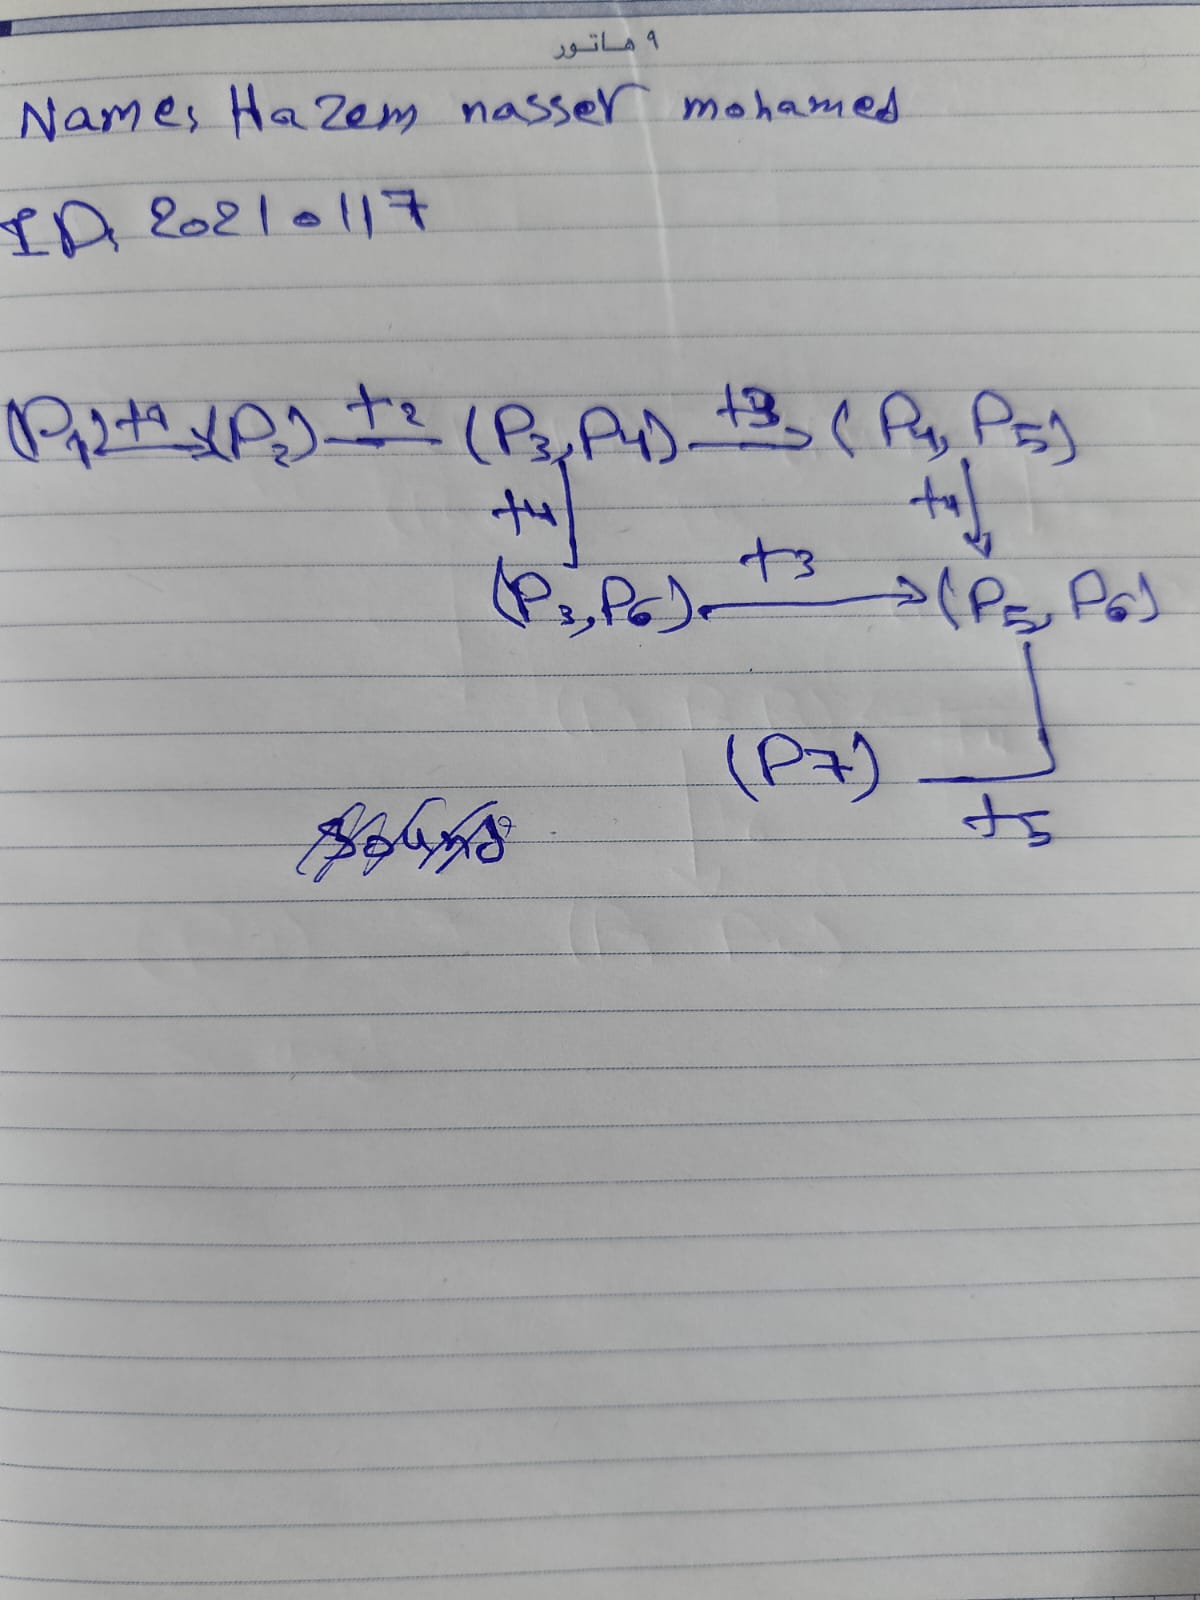 ٩ هاتور
Name, Hazem nasser mohamed
ID, 20210117
(P1) t1 (P2) t2 (P3, P4) t3 (P4, P5)
t4 t4
(P3, P6) t3 (P5, P6)
(P7)
t5